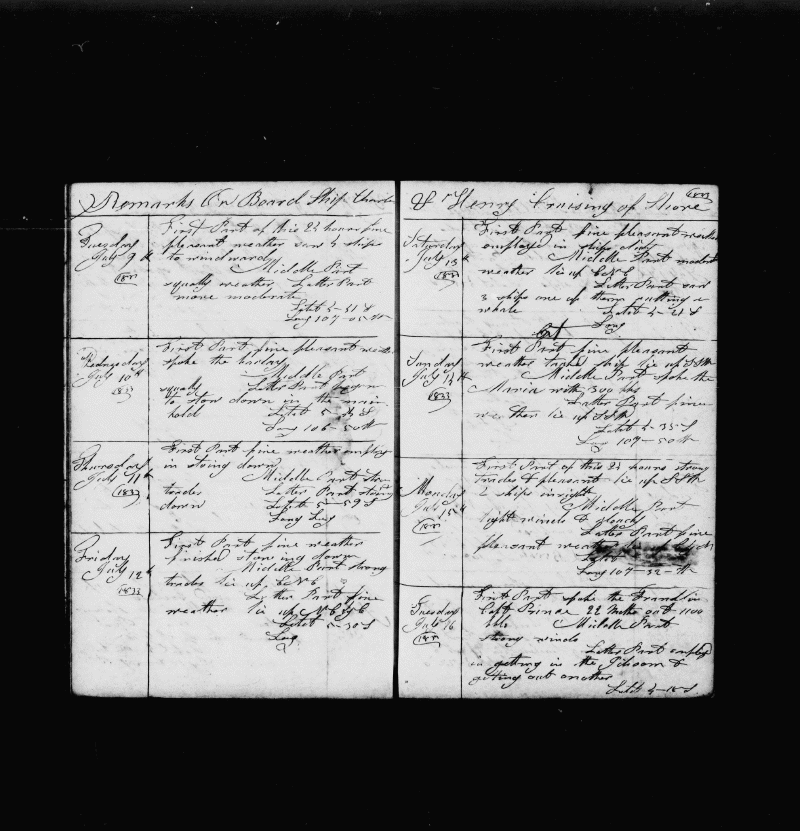 Remarks On Board Ship Charles
Tuesday
July 9th
1833
First Part of this 24 hours fine
pleasant weather saw 4 ships
to windward
Middle Part
squaly weather Latter Part
more moderate
Latet 5-31 S
Long 107-05 W
Wednesday
July 10th
1833
First Part fine pleasant weather
spoke the
Middle Part
squaly Latter Part began
to stow down in the main
hold Latet 5
Long 106-50 W
Thursday
July 11th
1833
First Part fine weather employ
in stoing down
Middle Part
trades Latter Part strong
down Latet 5-59 S
Long
Friday
July 12th
1833
First Part fine weather
finished storeing down
Middle Part strong
trades lie up
Latter Part fine
weather lie up
Latet 5-30 S
Long
& Henry Cruising of Shore
1833
Saturday
July 13th
1833
First Part fine pleasant weather
employed in ships duty
Middle Part moderate
weather lie up
Latter Part saw
3 ships one of them cutting a
whale Latet 5-21 S
Long
Sunday
July 14th
1833
First Part fine pleasant
weather tacked ship lie up SSW
Middle Part spoke the
Maria with 300 bbls
Latter Part fine
weather lie up SSW
Latet 5-35 S
Long 107-50 W
Monday
July 15th
First Part of this 24 hours strong
trades & pleasant lie up SSW
2 ships insight
Middle Part
light winds &
Latter Part fine
pleasant weather
Latet
Long 107-32 W
Tuesday
July 16
First Part spoke the Franklin
Capt Prince 22 Months out 1100
bbls Middle Part
strong winds
Latter Part employd
in getting in the Jiboom &
geting out another
Latet 5-18 S